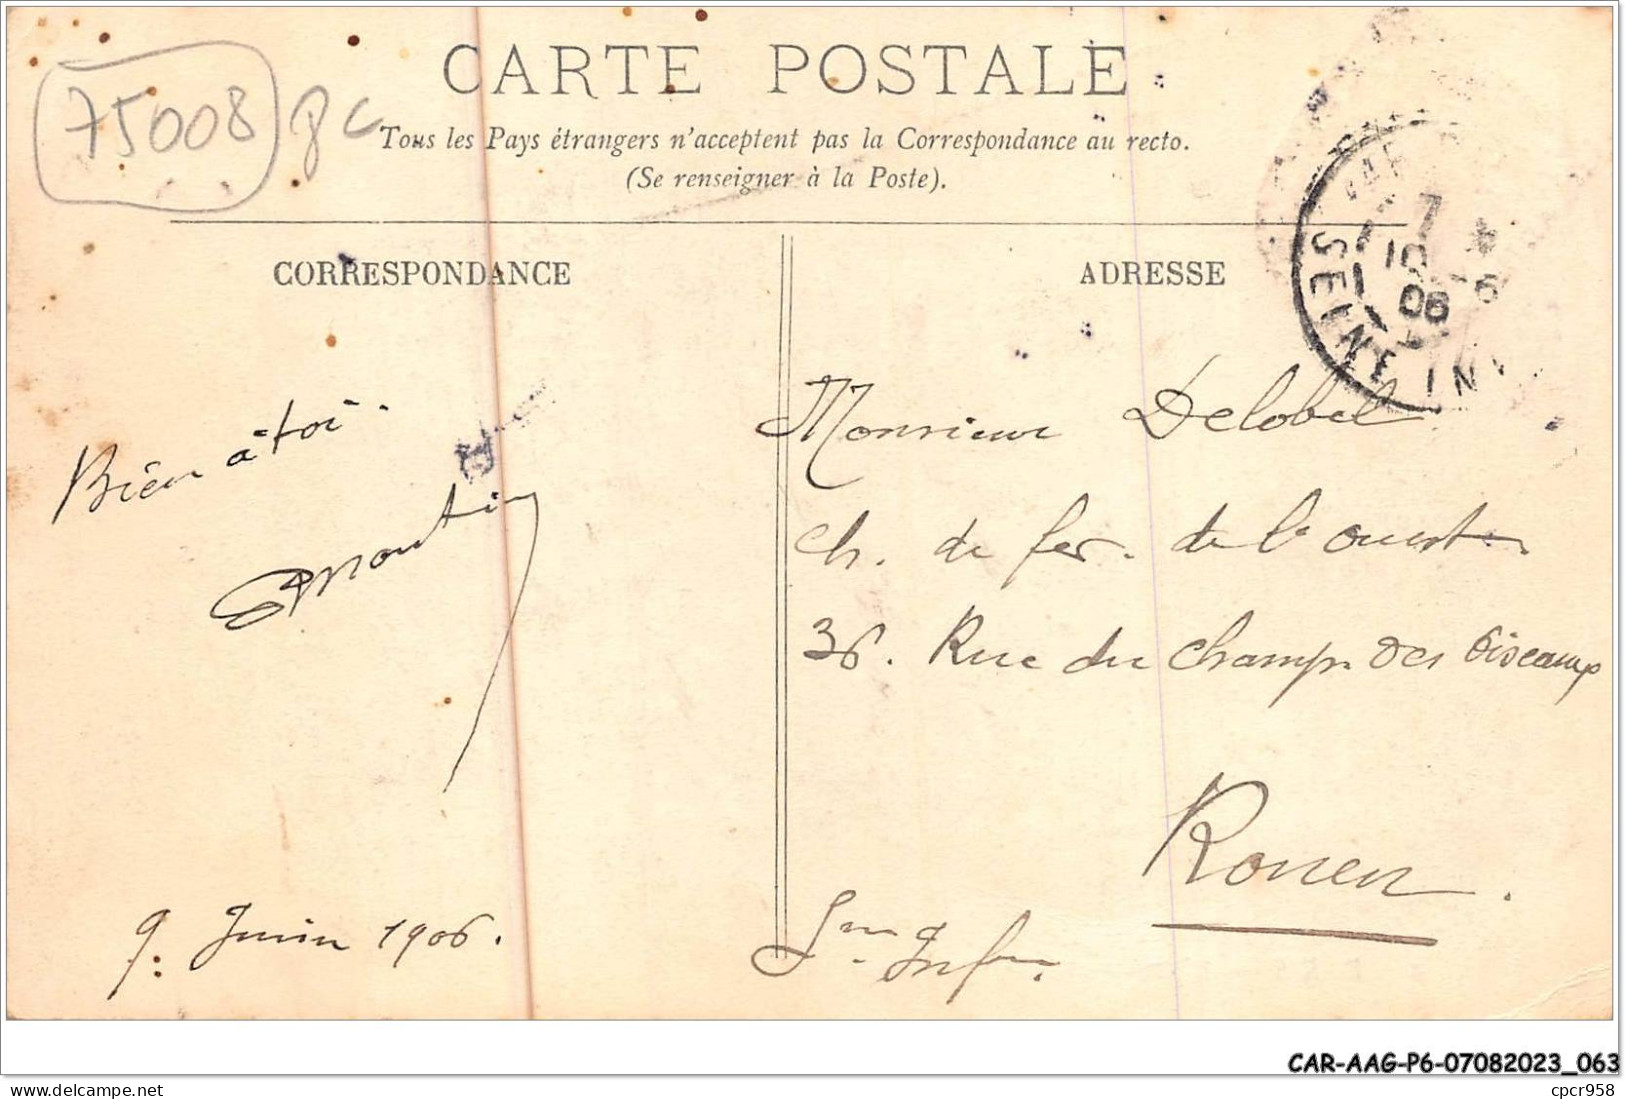 CARTE POSTALE
75008
Tous les Pays étrangers n'acceptent pas la Correspondance au recto.
(Se renseigner à la Poste).
CORRESPONDANCE
ADRESSE
7
10 - 6
06
SEINE INF
Bien à toi.
Monsieur Delobel
Ch. de fer. de l'ouest
36. Rue du Champ des Oiseaux
Rouen.
Sne Infre.
9. Juin 1906.
CAR-AAG-P6-07082023_063
www.delcampe.net
cpcr958